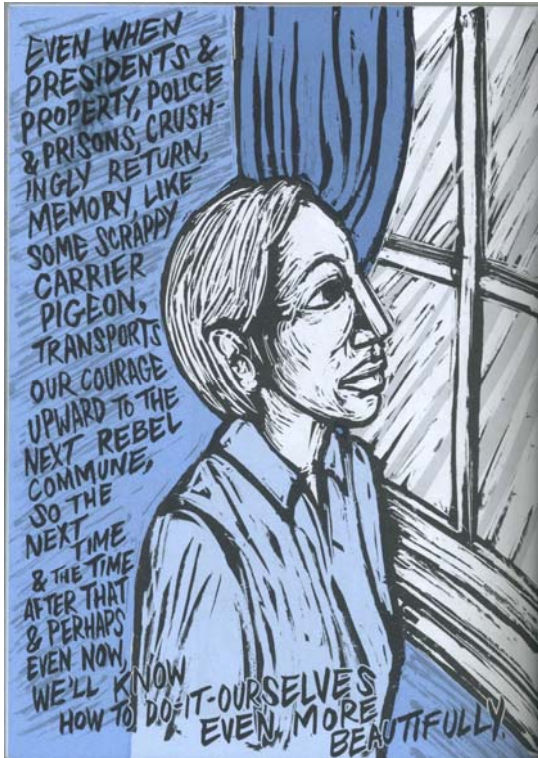 EVEN WHEN
PRESIDENTS &
PROPERTY, POLICE
& PRISONS, CRUSH-
INGLY RETURN,
MEMORY, LIKE
SOME SCRAPPY
CARRIER
PIGEON,
TRANSPORTS
OUR COURAGE
UPWARD TO THE
NEXT REBEL
COMMUNE,
SO THE
NEXT TIME
& THE TIME
AFTER THAT
& PERHAPS
EVEN NOW,
WE'LL KNOW
HOW TO DO-IT-OURSELVES
EVEN MORE
BEAUTIFULLY.